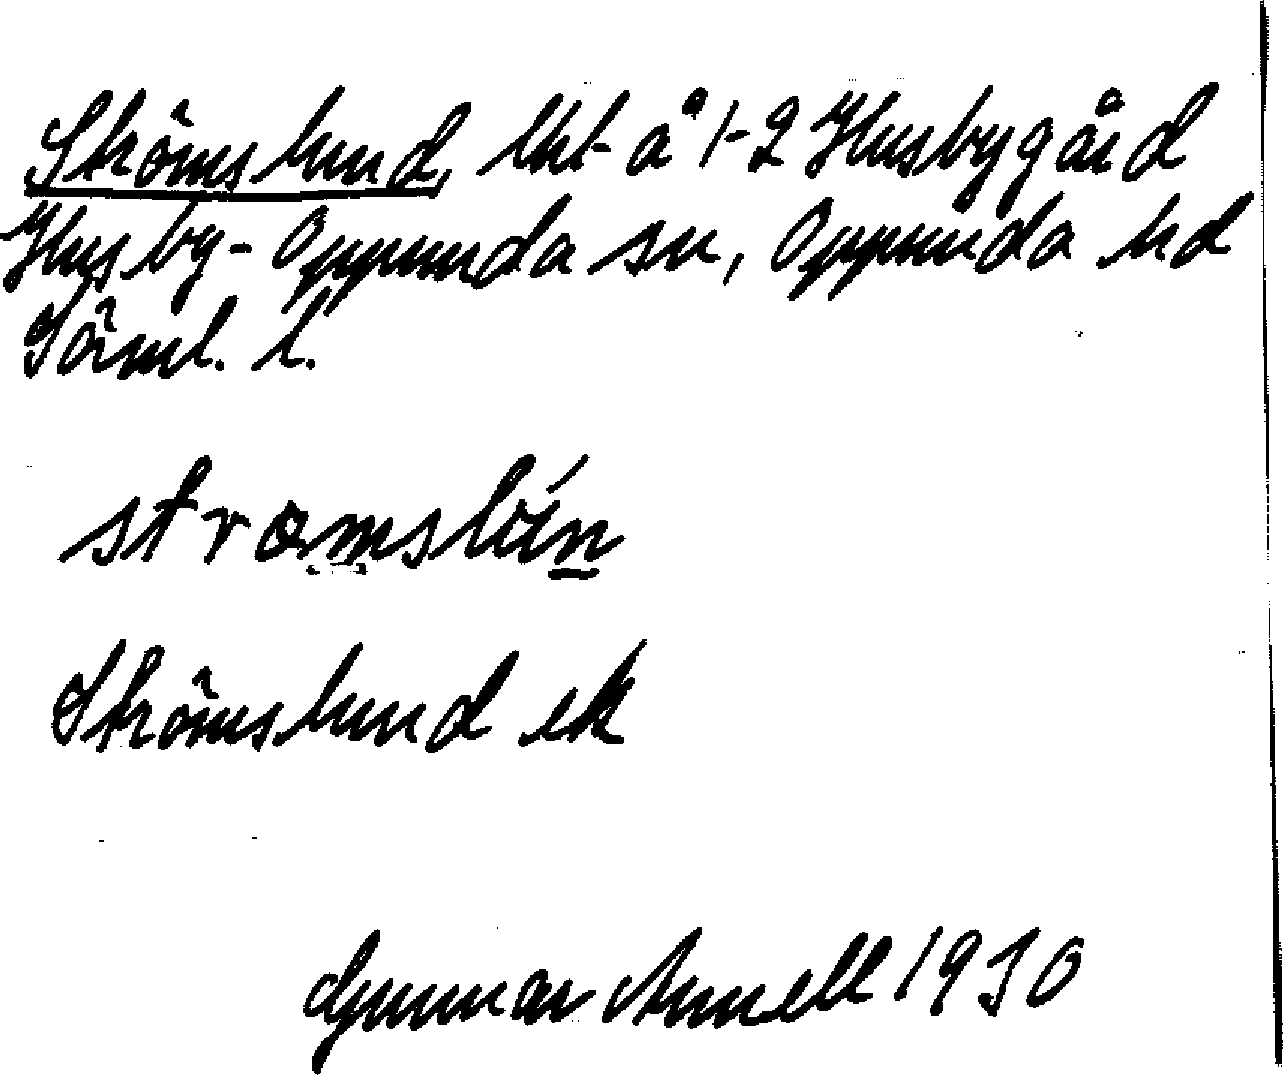 Strömslund, lht å 1-2 Husbygård
Husby-Oppunda sn, Oppunda hd
Sörml. l.
strömslún
Strömslund ek
Gunnar Arnell 1930